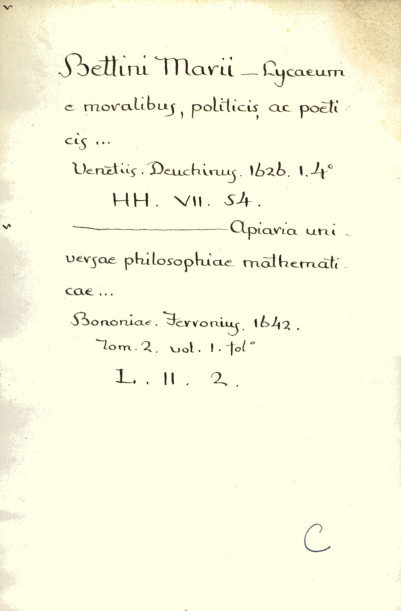 Bettini Marii — Lycaeum
e moralibus, politicis, ac poëti-
cis ...
Venëtiis. Deuchinus. 1626. 1. 4°
HH. VII. 54.
———— Apiaria uni-
versae philosophiae mathemati-
cae ...
Bononiae. Ferronius, 1642.
Tom. 2. vol. 1. fol°
L. II. 2.
C